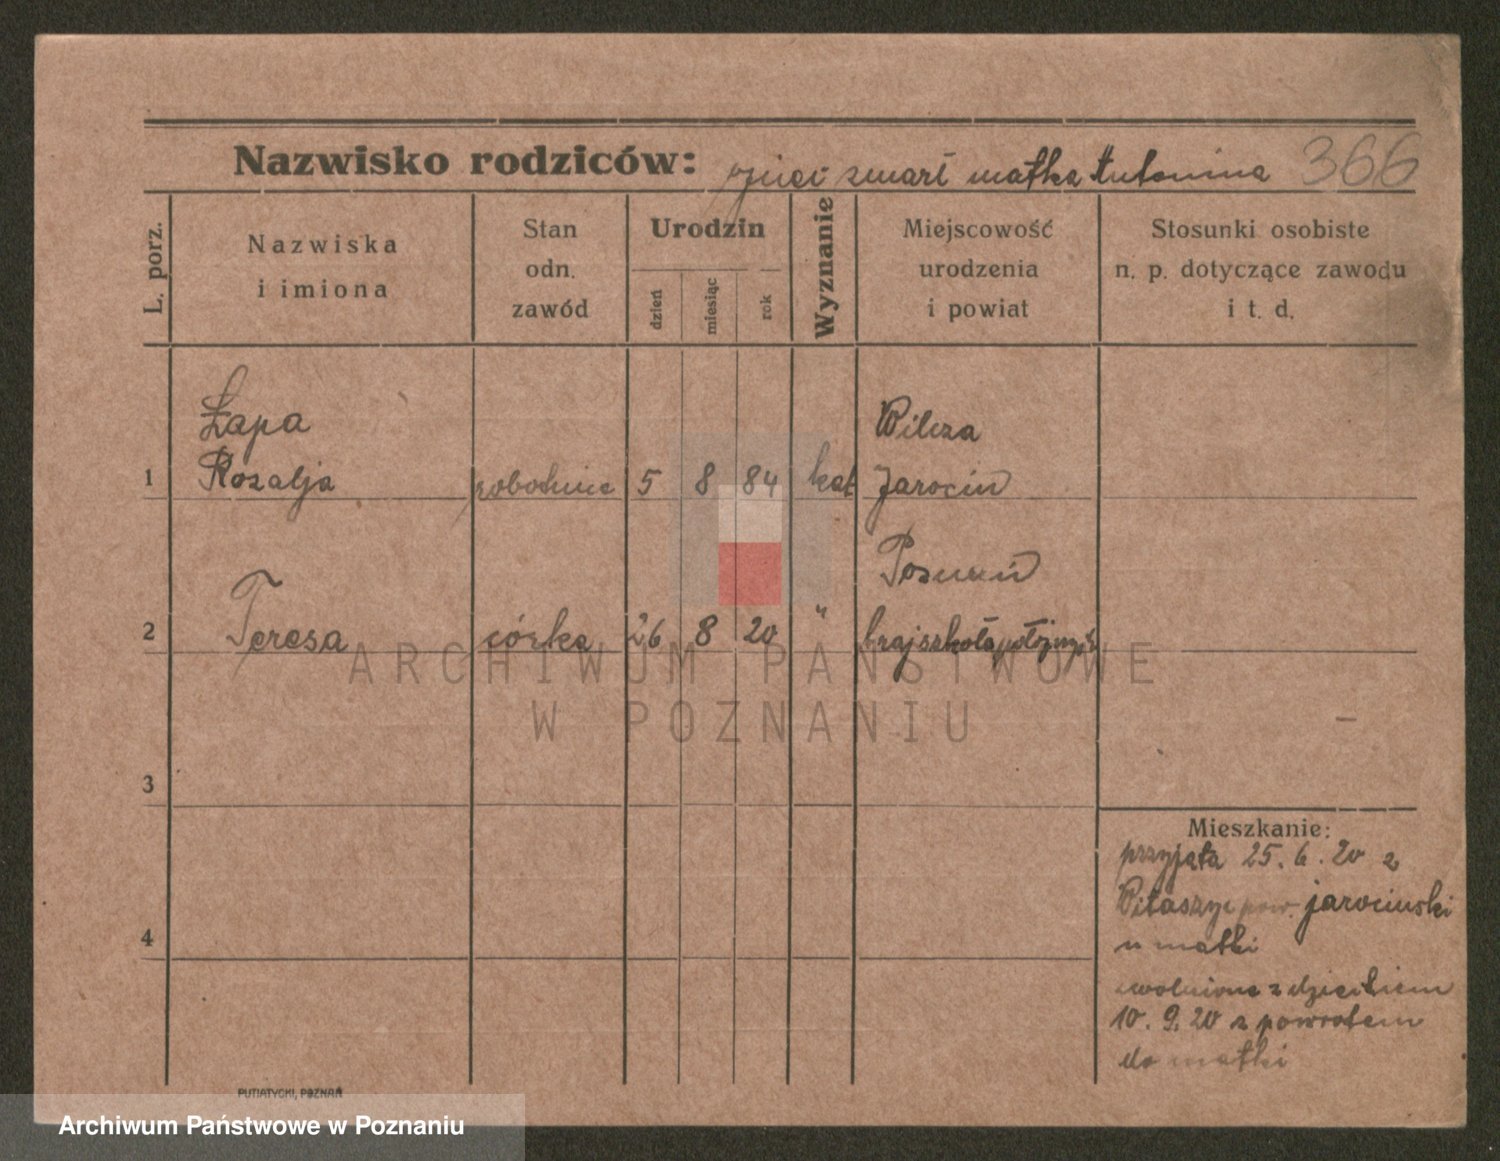 Nazwisko rodziców: ojciec zmarł matka Antonina 366
L. porz.
Nazwiska
i imiona
Stan
odn.
zawód
Urodzin
dzień
miesiąc
rok
Wyznanie
Miejscowość
urodzenia
i powiat
Stosunki osobiste
n. p. dotyczące zawodu
i t. d.
Łapa
Wilcza
1 Rozalja robotnica 5 8 84 kat Jarocin
Poznań
2 Teresa córka 26 8 20 " krajszkoła położnych
3
4
Mieszkanie:
przyjęta 25. 6. 20 z
Witaszyc pow. jarocinski
u matki
zwolniona z dzieckiem
10. 9. 20 z powrotem
do matki
PUTIATYCKI, POZNAŃ
ARCHIWUM PAŃSTWOWE
W POZNANIU
Archiwum Państwowe w Poznaniu